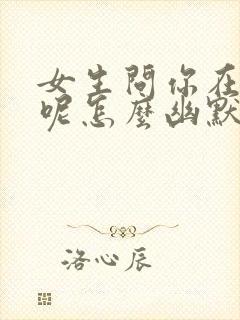 女生問你在
呢怎麼幽默
洛心辰